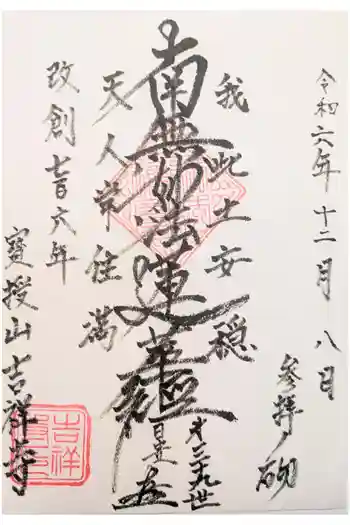 令和六年十二月八日
参拝ノ砌
我此土安穏
南無妙法蓮華経
第三十九世
天人常住満
改創七百六年
寶授山吉祥寺
吉祥